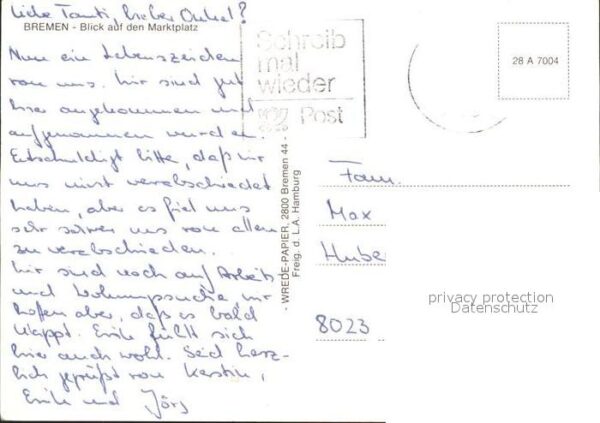 Liebe Tanti, lieber Onkel!
BREMEN - Blick auf den Marktplatz
Nun ein Lebenszeichen
von uns. Wir sind gut
hier angekommen und
aufgenommen worden.
Entschuldigt bitte, daß wir
uns nicht verabschiedet
haben, aber es fiel uns
sehr schwer uns von allen
zu verabschieden.
Wir sind noch auf Arbeits
und Wohnungssuche, wir
hoffen aber, daß es bald
klappt. Emile fühlt sich
hier auch wohl. Seid herz-
lich gegrüßt von Kerstin,
Emile und Jörg
Schreib
mal
wieder
Post
28 A 7004
- WREDE-PAPIER, 2800 Bremen 44 -
Freig. d. L.A. Hamburg
Fam.
Max
Hube
8023
privacy protection
Datenschutz